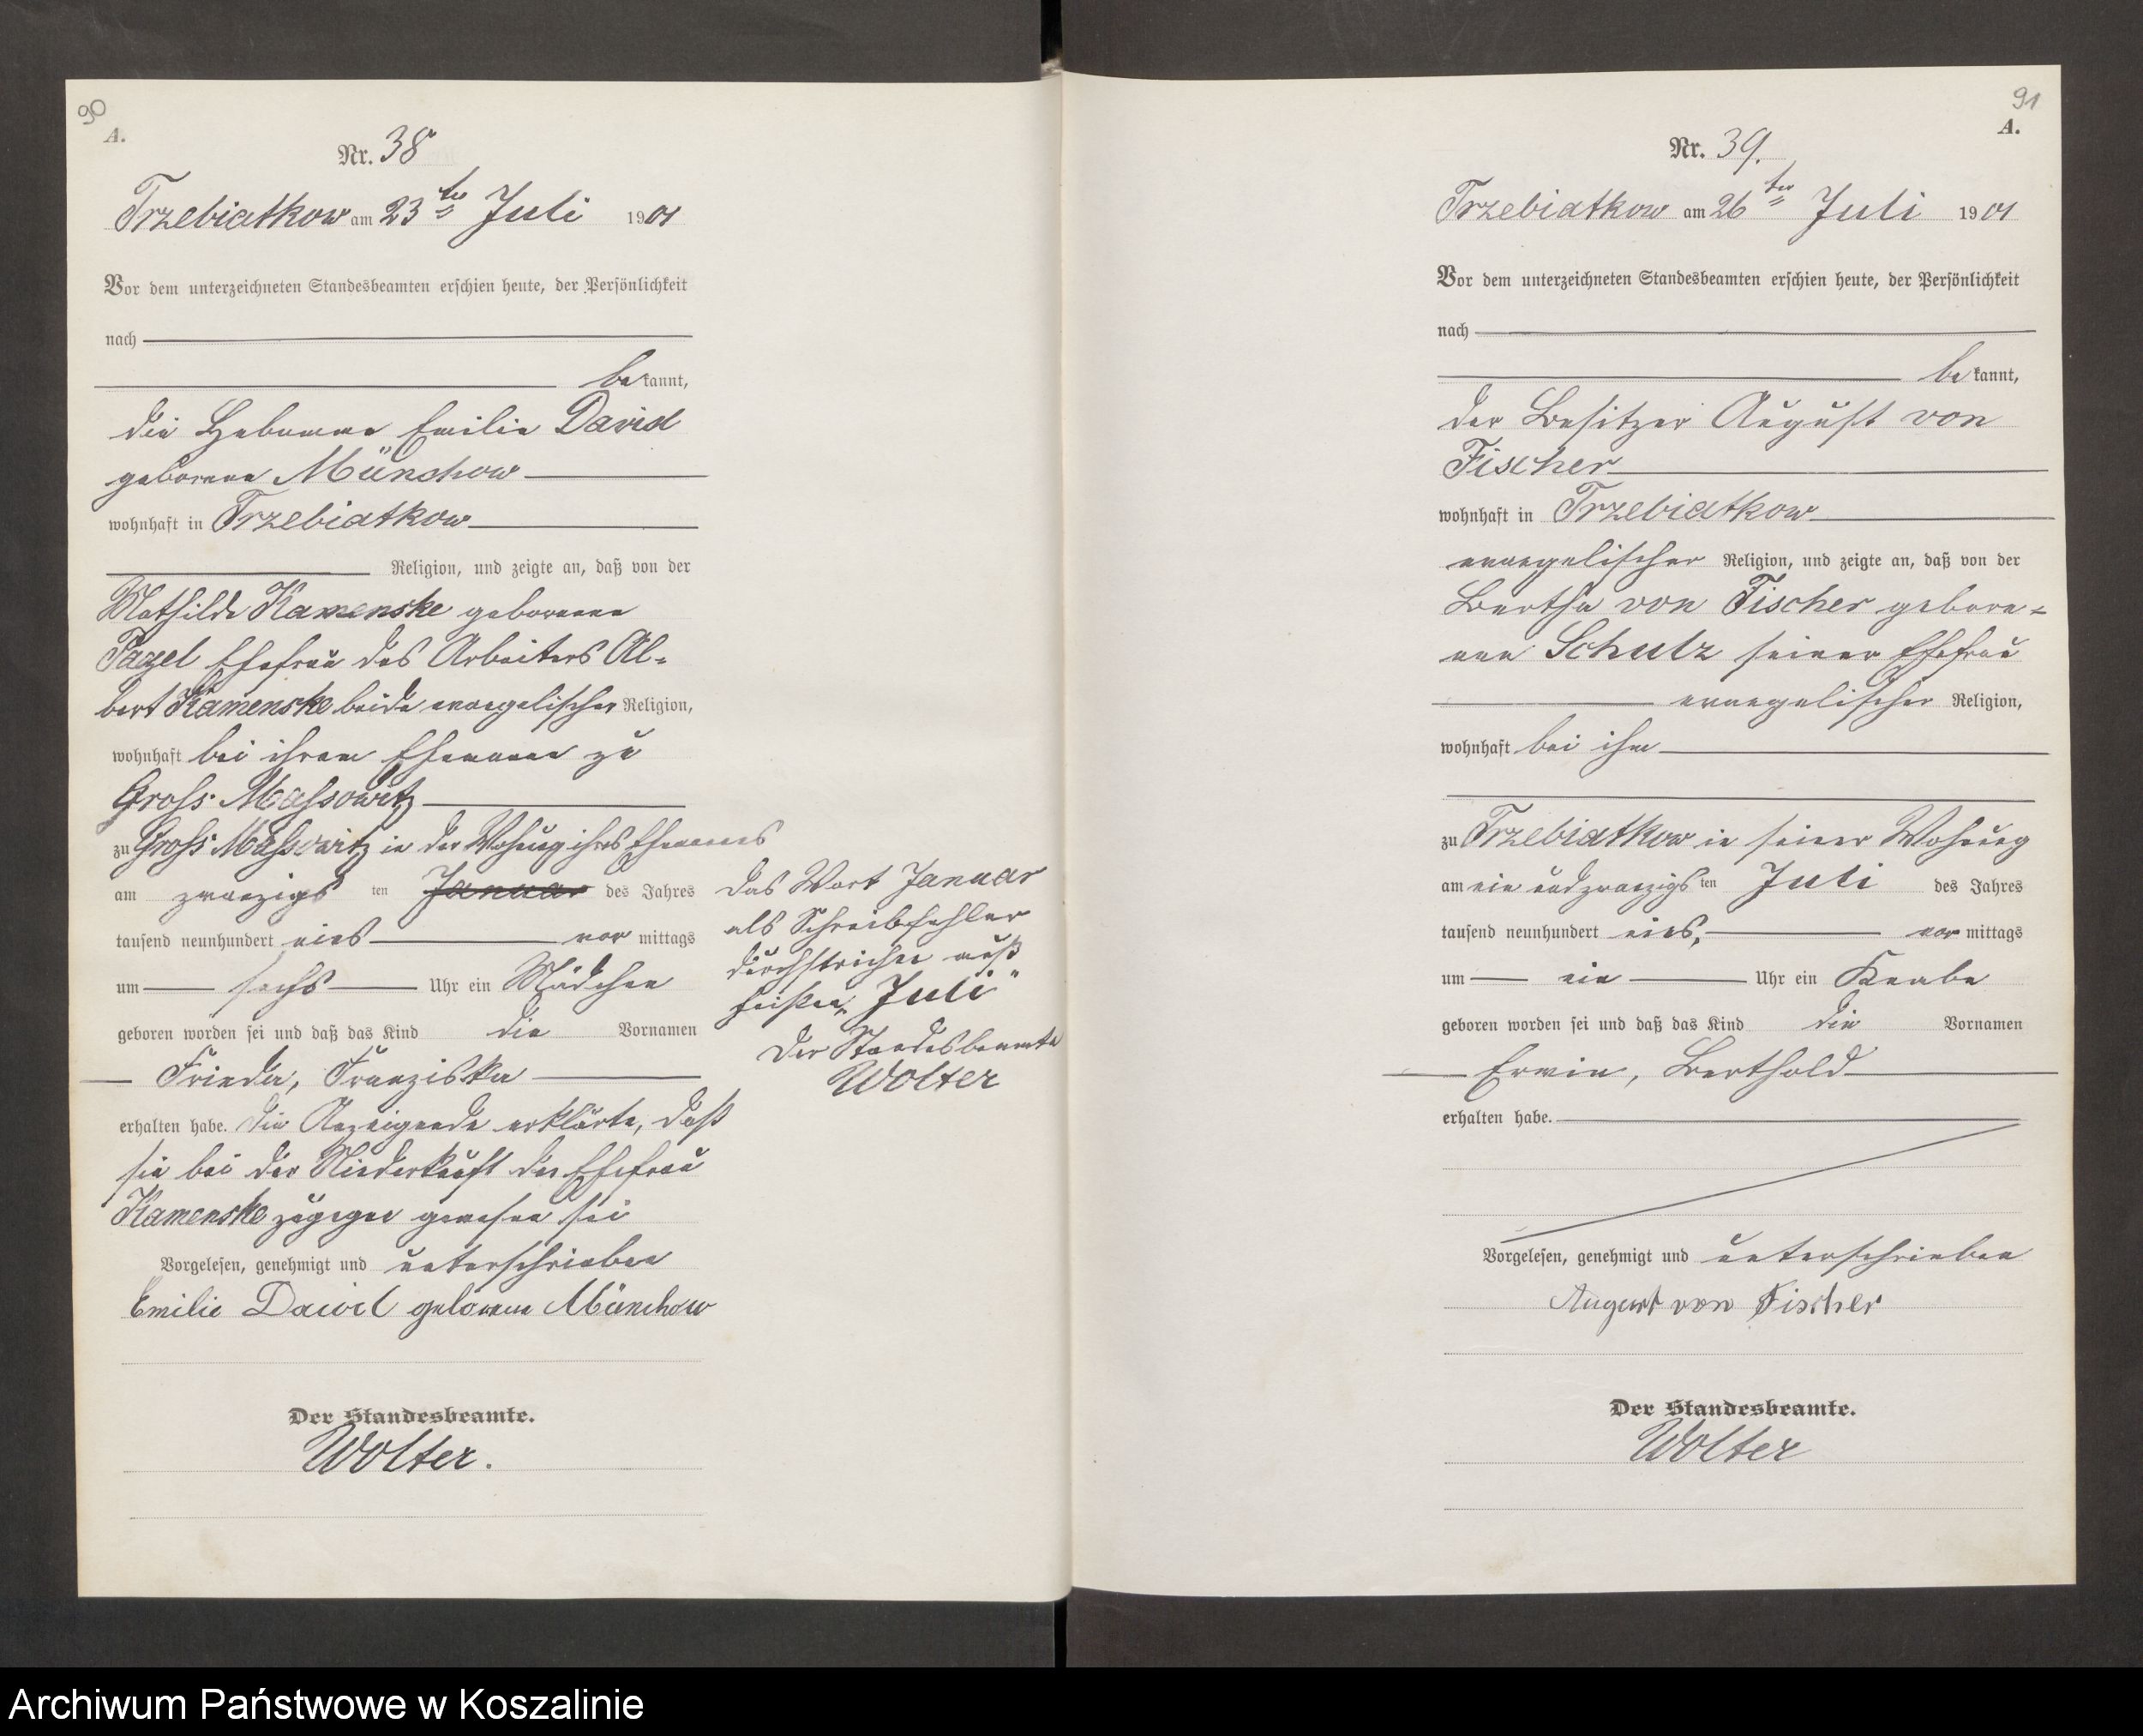 90
A.
Nr. 38
Trzebiatkow am 23ten Juli 1901
Vor dem unterzeichneten Standesbeamten erschien heute, der Persönlichkeit
nach
be kannt,
die Hebamme Emilie David
geborene Münchow
wohnhaft in Trzebiatkow
Religion, und zeigte an, daß von der
Mathilde Kamenske geborenen
Pagel Ehefrau des Arbeiters Al-
bert Kamenske beide evangelischer Religion,
wohnhaft bei ihrem Ehemann zu
Gross Massowitz
zu Gross Massowitz in der Wohnung ihres Ehemannes
am zwanzigs ten Januar des Jahres
tausend neunhundert eins vor mittags
um sechs Uhr ein Mädchen
geboren worden sei und daß das Kind die Vornamen
Frieda, Franziska
erhalten habe. Die Anzeigende erklärte, daß
sie bei der Niederkunft der Ehefrau
Kamenske zugegen gewesen sei
Vorgelesen, genehmigt und unterschrieben
Emilie David geborene Münchow
Der Standesbeamte.
Wolter.
Das Wort Januar
als Schreibfehler
durchstrichen muß
heißen „Juli"
Der Standesbeamte
Wolter
91
A.
Nr. 39.
Trzebiatkow am 26ten Juli 1901
Vor dem unterzeichneten Standesbeamten erschien heute, der Persönlichkeit
nach
be kannt,
der Besitzer August von
Fischer
wohnhaft in Trzebiatkow
evangelischer Religion, und zeigte an, daß von der
Bertha von Fischer gebore-
nen Schulz seiner Ehefrau
evangelischer Religion,
wohnhaft bei ihm
zu Trzebiatkow in seiner Wohnung
am ein und zwanzigs ten Juli des Jahres
tausend neunhundert eins, vor mittags
um ein Uhr ein Knabe
geboren worden sei und daß das Kind die Vornamen
Erwin, Berthold
erhalten habe.
Vorgelesen, genehmigt und unterschrieben
August von Fischer
Der Standesbeamte.
Wolter
Archiwum Państwowe w Koszalinie